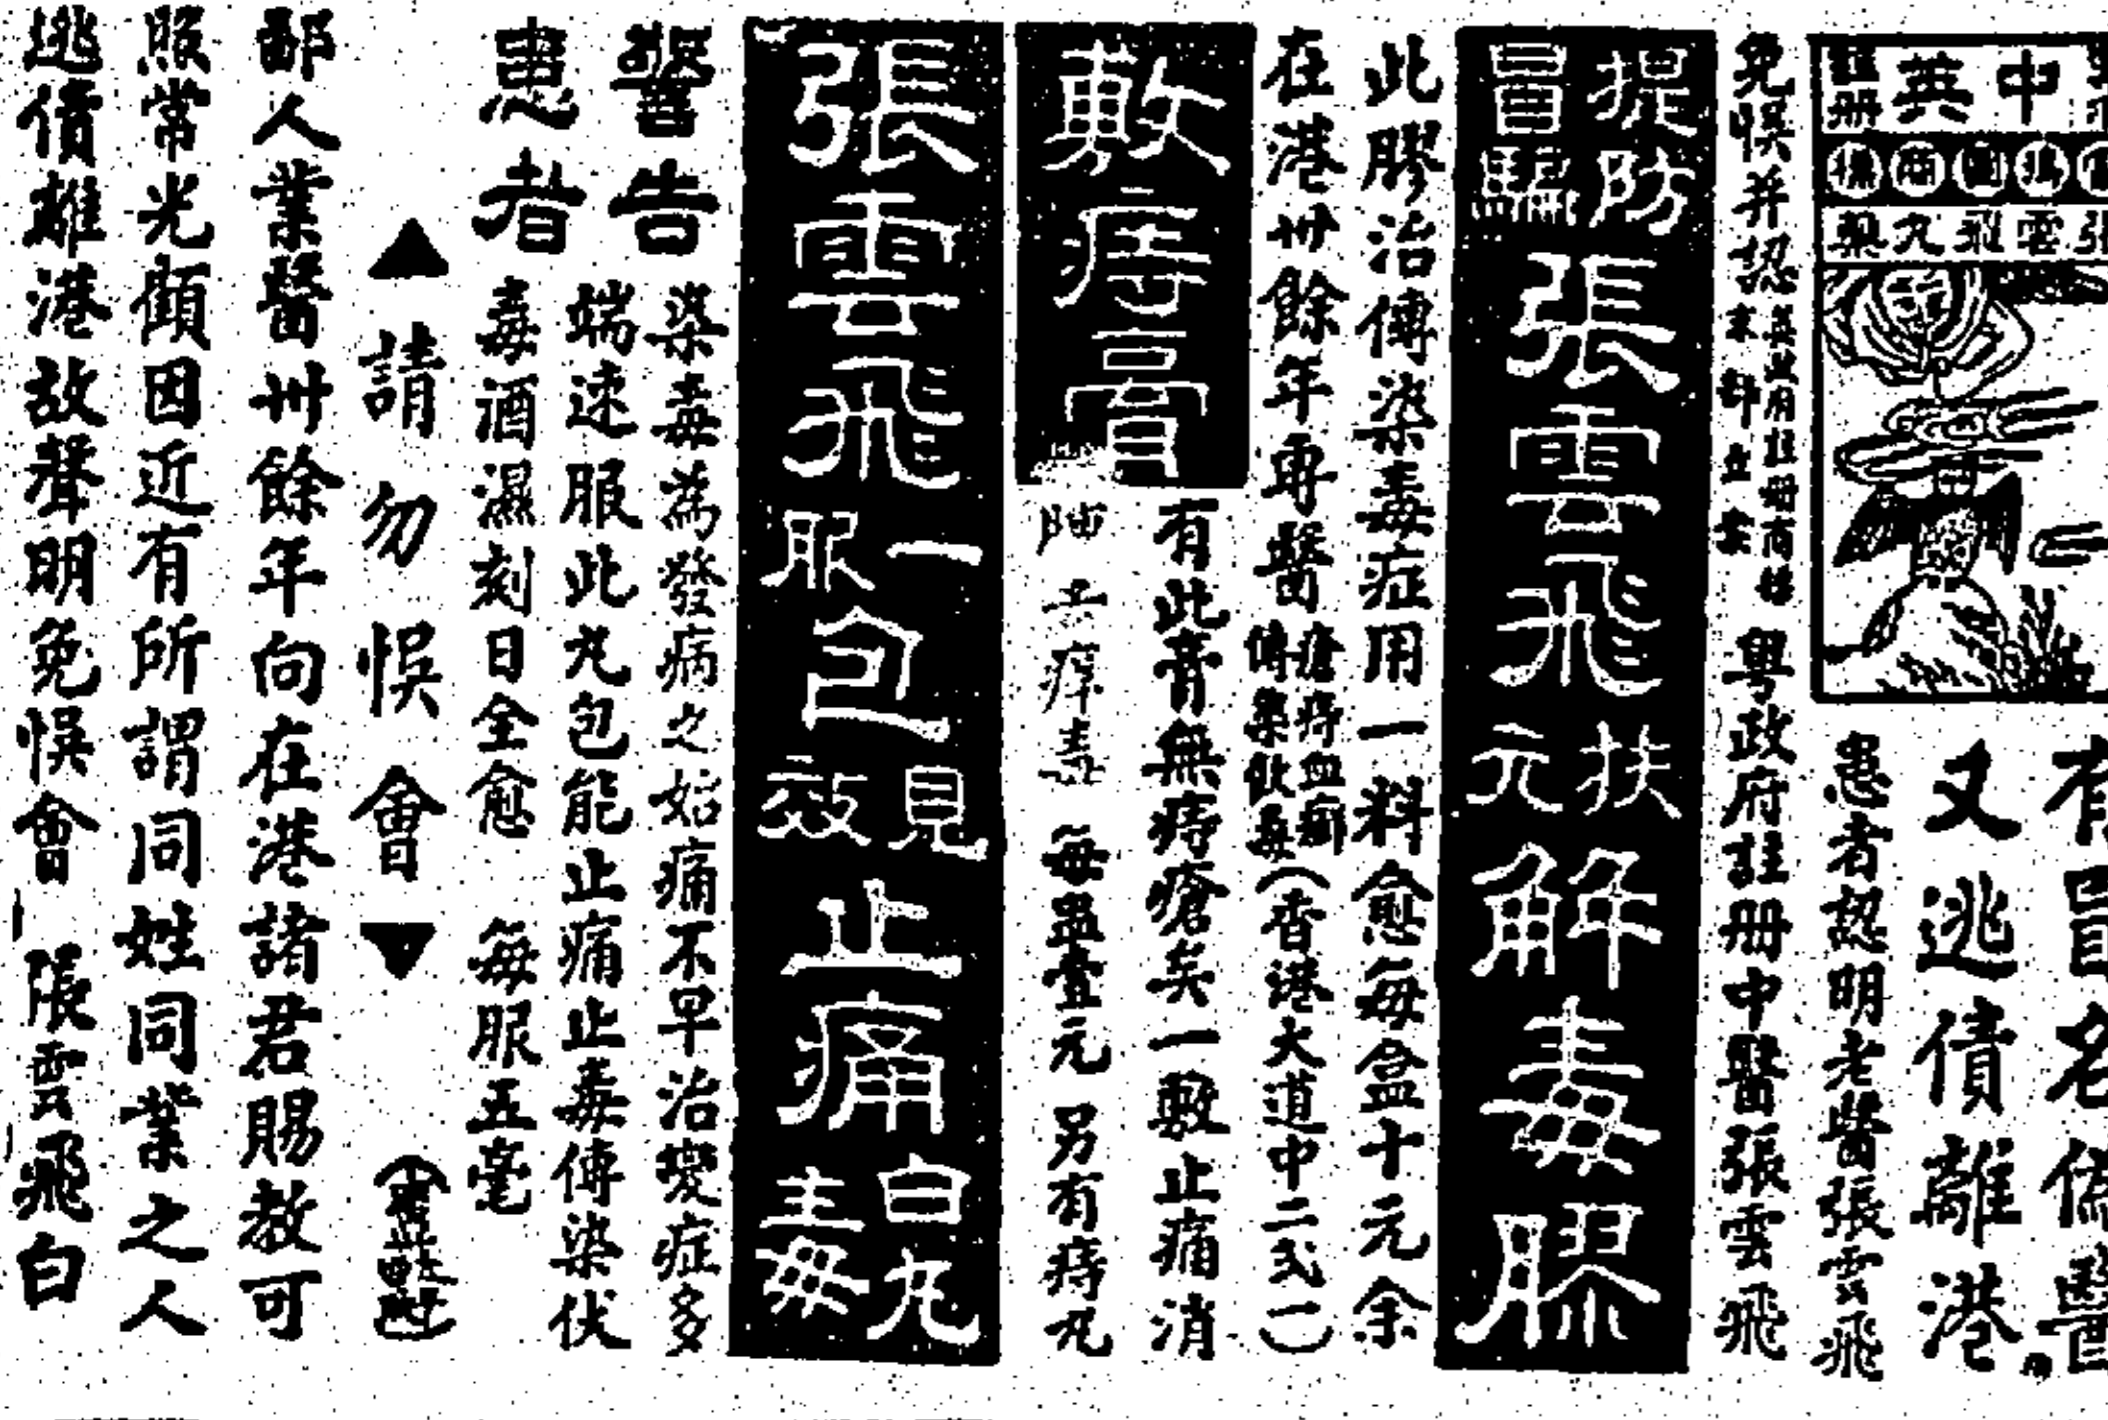 中英
註冊
張雲飛丸藥
有冒名偽醫
又逃債離港
患者認明老醫張雲飛
免悞并認
英政府註冊商標
粵政府註冊中醫張雲飛
提防冒騙
張雲飛扶元解毒膠
此膠治傳染毒症用一料愈每盒十元余
在港卅餘年專醫瘡痔血癬傳染飲毒(香港大道中二弍一)
敷痔膏
有此膏無痔瘡矣一敷止痛消
每盅壹元 另有痔丸
張雲飛一服包見效止痛白丸毒
警告患者
染毒為發病之始痛不早治變症多
端速服此丸包能止痛止毒傳染伏
毒酒濕刻日全愈 每服五毫
▲請勿悞會▼
鄙人業醫卅餘年向在港諸君賜教可
照常光顧因近有所謂同姓同業之人
逃債離港故聲明免悞會 張雲飛白